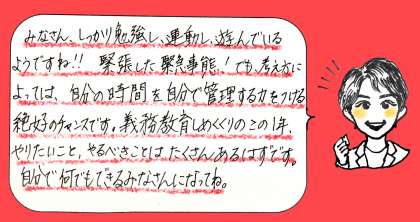 みなさん、しっかり勉強し、運動し、遊んでいる
ようですね!! 緊張した緊急事態!でも、考え方に
よっては、自分の時間を自分で管理する力をつける
絶好のチャンスです。義務教育しめくくりのこの1年
やりたいこと、やるべきことはたくさんあるはずです。
自分で何でもできるみなさんになってね。